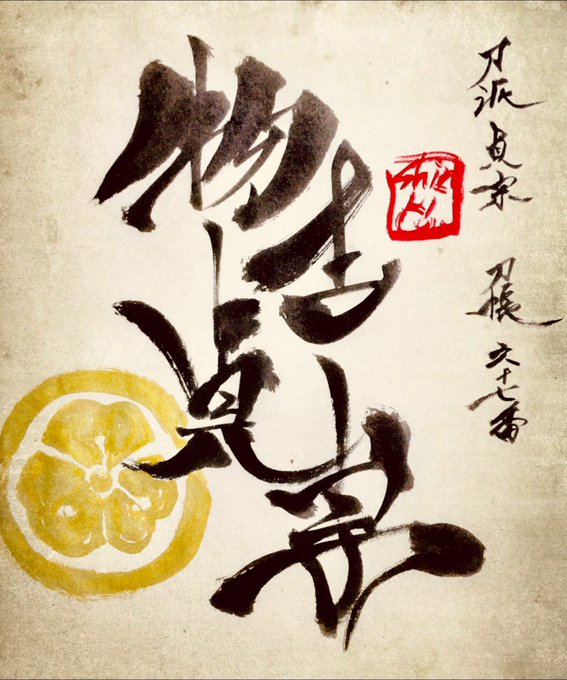 刀派 貞宗 刀帳 六十七番
物吉貞宗